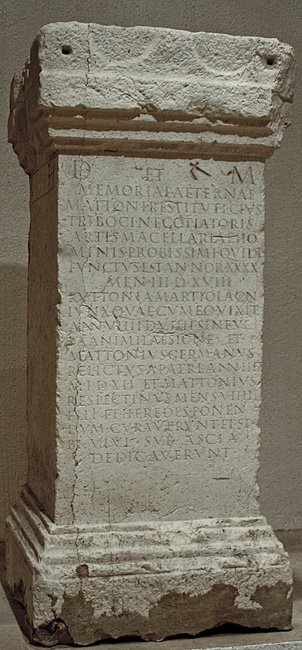 D ET M
MEMORIAE AETERNAE
MATTONI RESTITVTI CIVIS
TRIBOCI NEGOTIATORIS
ARTIS MACELLARIAE HO
MINIS PROBISSIMI QVI DE
FVNCTVS EST ANNOR XXXX
MEN III D XVIII
RVTTONIA MARTIOLA CON
IVNX QVAE CVM EO VIXIT
ANN VIIII D VIIII SINE VL
LA ANIMI LAESIONE ET
MATTONIVS GERMANVS
RELICTVS A PATRE ANN III
M I D XII ET MATTONIVS
RESPECTINVS MENS VIIII
FILI ET HEREDES PONEN
DVM CVRAVERVNT ET SI
BI VIVI SVB ASCIA
DEDICAVERVNT